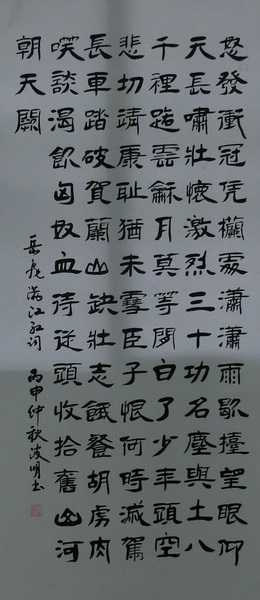 怒發衝冠凭欄處瀟瀟雨歇擡望眼仰
天長嘯壯懷激烈三十功名塵與土八
千裡路雲龢月莫等閑白了少年頭空
悲切靖康耻猶未雪臣子恨何時滅駕
長車踏破賀蘭山缺壯志餓餐胡虜肉
咲談渴飲匈奴血待從頭收拾舊山河
朝天闕
岳飛滿江紅詞 丙申仲秋波明书